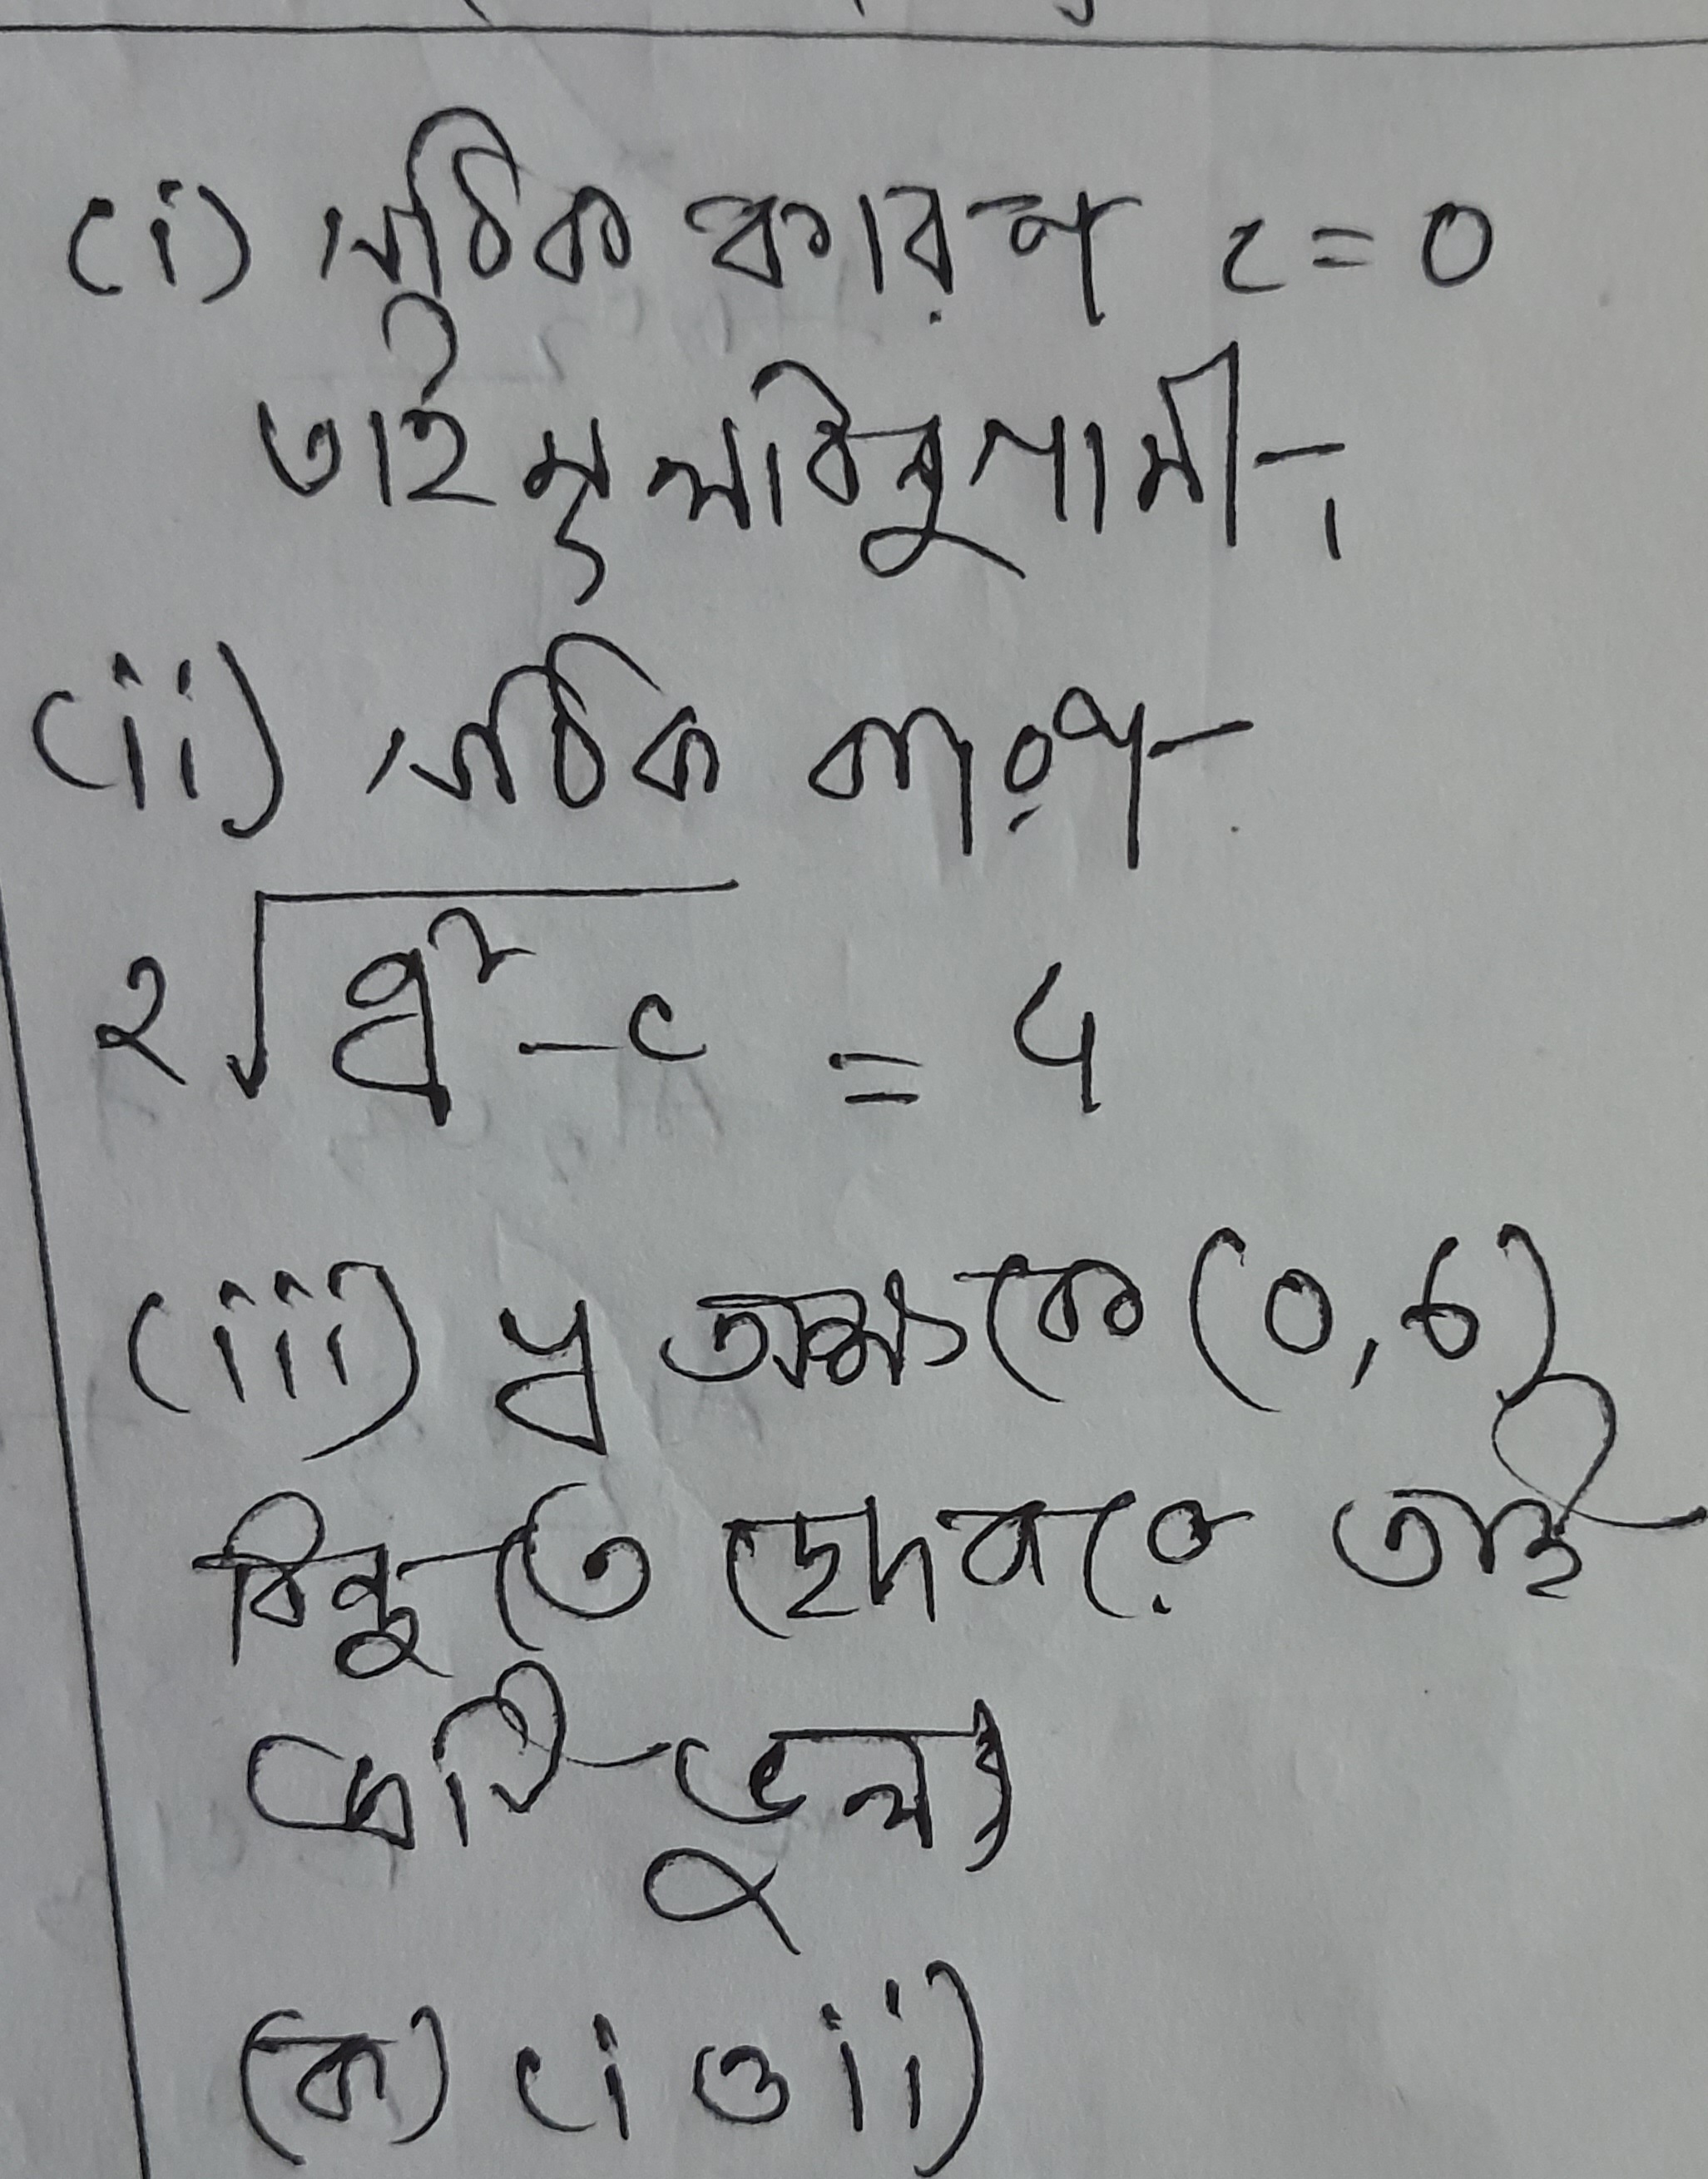 (i) সঠিক কারণ c = 0
তাই মূলবিন্দুগামী।
(ii) সঠিক কারণ
2√g² - c = 4
(iii) y অক্ষকে (0, 6)
বিন্দুতে ছেদকরে তাই
এটি ভুল।
(ক) (i ও ii)